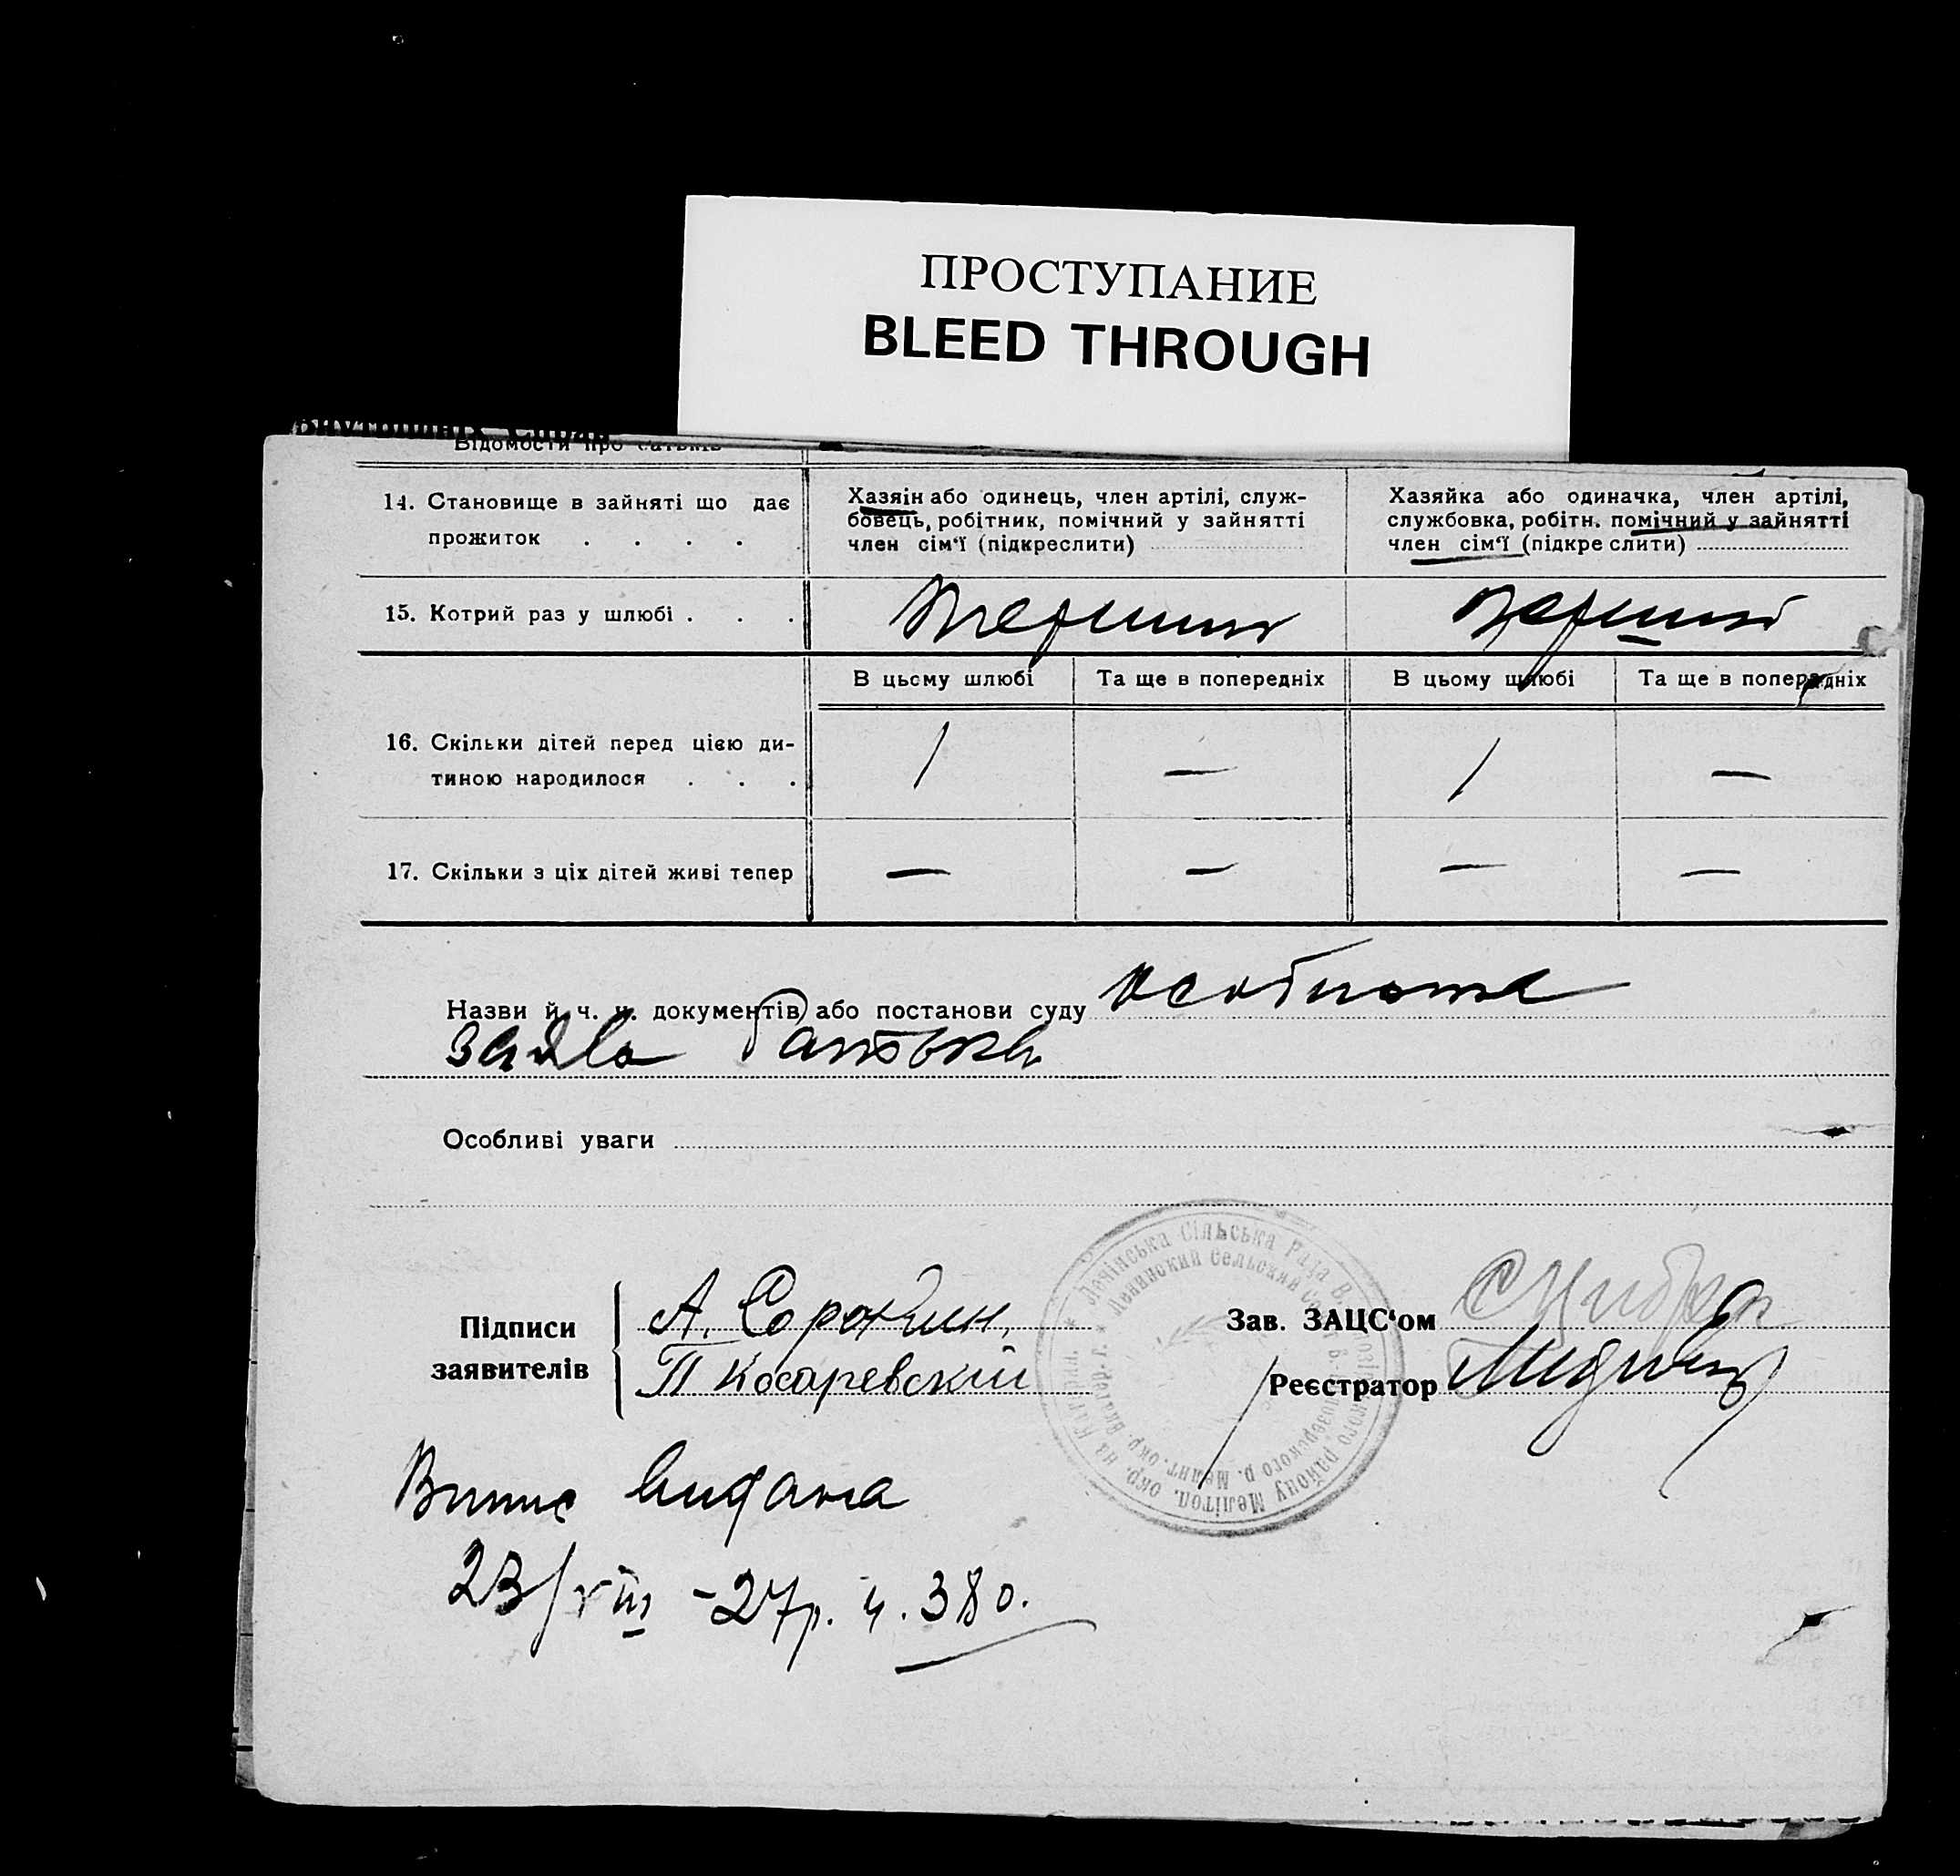 ПРОСТУПАНИЕ
BLEED THROUGH
Внутрішніх Справ
Відомости про батьків
14. Становище в зайняті що дає прожиток . . . . .
Хазяін або одинець, член артілі, служ-
бовець, робітник, помічний у зайнятті
член сім‘ї (підкреслити)
Хазяйка або одиначка, член артілі,
службовка, робітн. помічний у зайнятті
член сім‘ї (підкре слити)
15. Котрий раз у шлюбі . . .
перший
перший
В цьсму шлюбі
Та ще в попередніх
В цьому шлюбі
Та ще в попередніх
16. Скільки дітей перед цією ди-
тиною народилося . . .
1 — 1 —
17. Скільки з ціх дітей живі тепер
— — — —
Назви й ч. ч. документів або постанови суду особиста
заява батька
Особливі уваги
Підписи
заявителів
А. Сорокин,
П Косаревский
Сільська Рада
Ленинский Сельский
району Мелітоп. окр.
Зав. ЗАЦС‘ом
Реєстратор
Випис видана
23/VIII -27р. ч. 380.